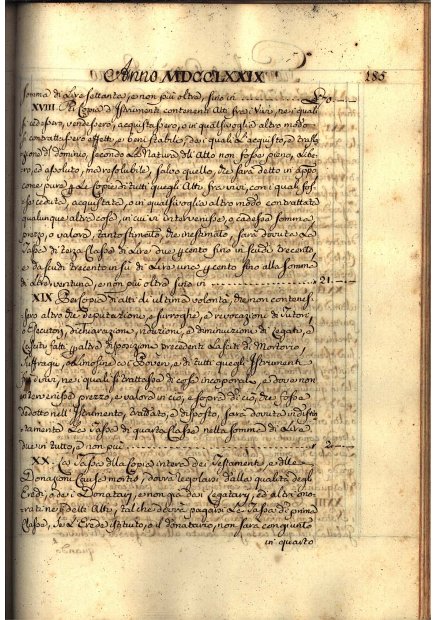 Anno MDCCLXXIX 185
somma di Lire settanta, e non più oltre, sino in 70
XVIII. Di Copie d'Istrumenti contenenti Atti fra i Vivi, ne' i quali
si cedessero, vendessero, acquistassero, o in qualsivoglia altro modo
si contrattassero effetti, e beni stabili, de i quali l'acquisto, e trasla-
zione di Dominio, secondo la Natura dell'Atto non fosse pieno, libe-
ro, ed assoluto, ma resolubile, salvo quello, che sarà detto in appo
come pure le Copie di tutti quegli Atti fra i vivi, con i quali fos-
se cedute, acquistate, o in qualsivoglia altro modo contrattate
qualunque altre cose, in cui v'intervenisse, o cadesse somma,
prezzo, o valore, tanto stimato, che inestimato, sarà dovuta la
Tassa di terza Classe di Lire due per cento sino in scudi trecento,
e da scudi trecento in sù di Lire una per cento sino alla somma
di altre ventuna, e non più oltre sino in 21
XIX. Per copie d'atti di ultima volontà, che non contenes-
sero altro che deputazione, e surroghe, e revocazioni di Tutori,
o Esecutori, dichiarazioni, riduzioni, e diminuzioni di Legati, e
Lasciti fatti per altre disposizioni precedenti Lasciti di Mortorio,
Suffragi, o Elimosine a' Poveri, e di tutti quegli Istrumenti
fra i vivi, ne i quali si trattasse di cose incorporali, e dove non
intervenisse prezzo, e valore in ciò, e sopra di ciò, che fosse
dedotto nell'Istrumento, trattato, e disposto, sarà dovuta indistin-
tamente la Tassa di quarta Classe nella somma di Lire
due in tutto, e non più 2
XX. La Tassa della Copia intera dei Testamenti, e delle
Donazioni Causa mortis, dovrà regolarsi dalla qualità degli
Eredi, o dei Donatarj, e non già dai Legatarj, ed altri ono-
rati ne' detti Atti, tal che dovrà pagarsi la Tassa di prima
Classe, se l'Erede istituto, o il donatario, non sarà congiunto
in quarto